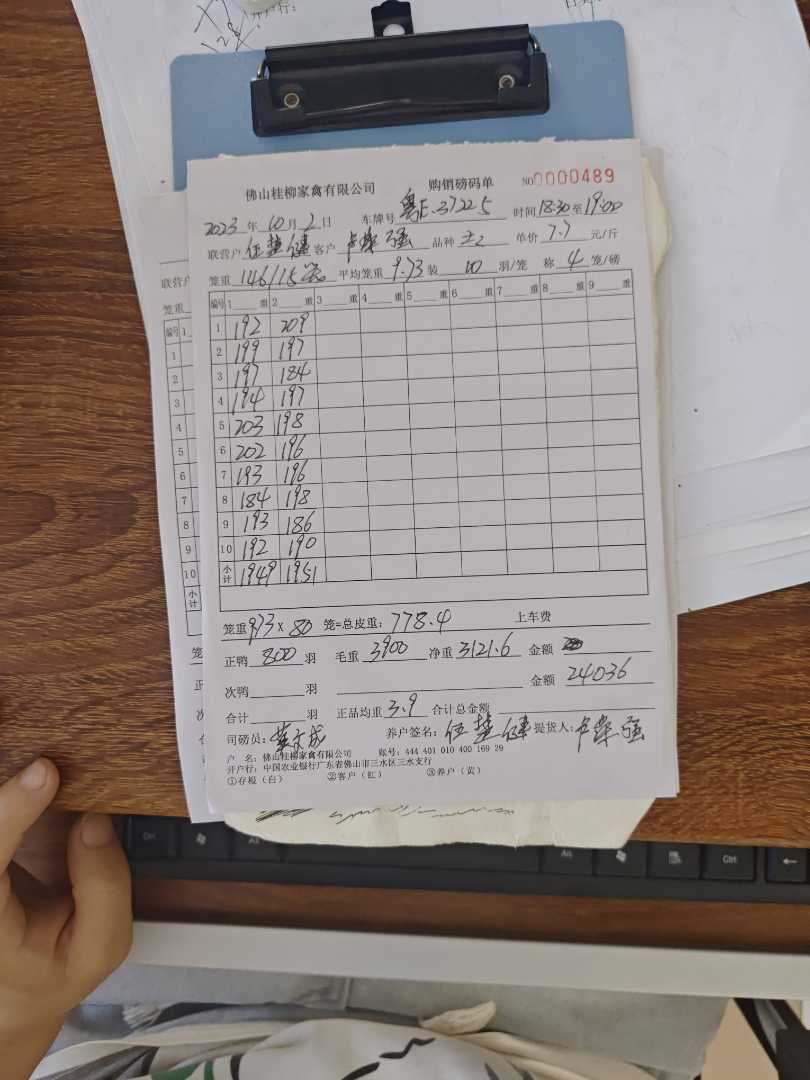 佛山桂柳家禽有限公司 购销磅码单 NO0000489
2023年10月2日 车牌号 粤E.37225 时间18:30至19:00
联营户 伍楚健 客户 卢荣强 品种 土2 单价 7.7 元/斤
笼重 146/15笼 平均笼重 9.73 装 10 羽/笼 称 4 笼/磅
编号 1 重 2 重 3 重 4 重 5 重 6 重 7 重 8 重 9 重
1 192 209
2 199 197
3 197 184
4 194 197
5 203 198
6 202 196
7 193 196
8 184 198
9 193 186
10 192 190
小计 1949 1951
笼重 973 X 80 笼=总皮重: 778.4 上车费
正鸭 800 羽 毛重 3900 净重 3121.6 金额
次鸭 羽 金额 24036
合计 羽 正品均重 3.9 合计总金额
司磅员: 养户签名: 伍楚健 提货人: 卢荣强
户 名: 佛山桂柳家禽有限公司 账号: 444 401 010 400 169 29
开户行: 中国农业银行广东省佛山市三水区三水支行
①存根（白） ②客户（红） ③养户（黄）